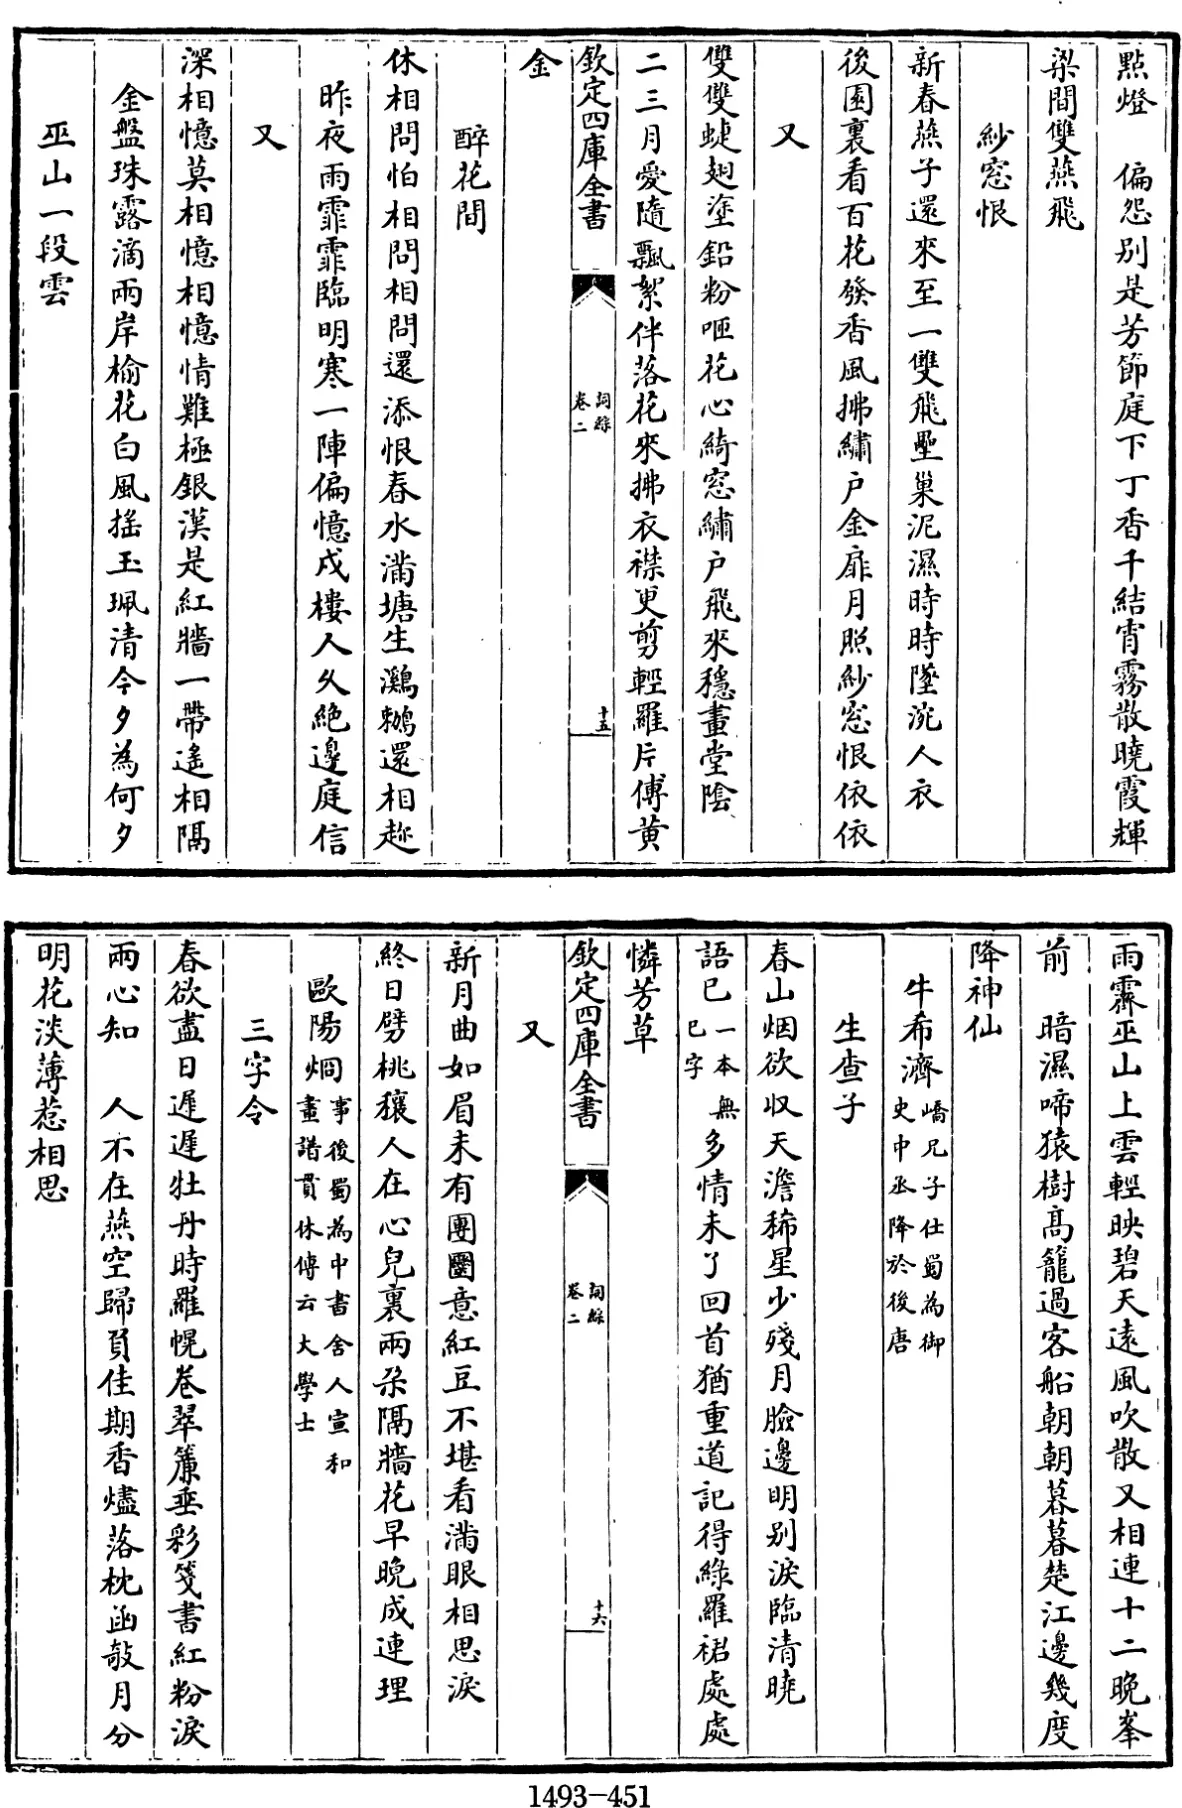 點燈　偏怨别是芳節庭下丁香千結宵霧散曉霞輝
梁間雙燕飛
紗窓恨
新春燕子還來至一雙飛壘巢泥濕時時墜涴人衣
後園裏看百花發香風拂繡户金扉月照紗窓恨依依
又
雙雙蜨翅塗鉛粉咂花心綺窓繡户飛來穩畫堂陰
二三月愛隨飄絮伴落花來拂衣襟更剪輕羅片傅黄
欽定四庫全書
詞綜
卷二
十五
金
醉花間
休相問怕相問相問還添恨春水滿塘生鸂鶒還相趂
昨夜雨霏霏臨明寒一陣偏憶戍樓人久絶邊庭信
又
深相憶莫相憶相憶情難極銀漢是紅牆一帶遙相隔
金盤珠露滴兩岸榆花白風摇玉珮清今夕為何夕
巫山一段雲
雨霽巫山上雲輕映碧天逺風吹散又相連十二晩峯
前　暗濕啼猿樹髙籠過客船朝朝暮暮楚江邊幾度
降神仙
牛希濟
嶠兄子仕蜀為御
史中丞降於後唐
生查子
春山烟欲収天澹稀星少殘月臉邊明别淚臨清曉
語已
一本無
已字
多情未了回首猶重道記得綠羅裙處處
憐芳草
欽定四庫全書
詞綜
卷二
十六
又
新月曲如眉未有團圞意紅豆不堪看滿眼相思淚
終日劈桃穰人在心兒裏兩朶隔牆花早晩成連理
歐陽烱
事後蜀為中書舍人宣和
畫譜貫休傳云大學士
三字令
春欲盡日遲遲牡丹時羅幌卷翠簾垂彩箋書紅粉淚
兩心知　人不在燕空歸負佳期香燼落枕函敧月分
明花淡薄惹相思
1493-451